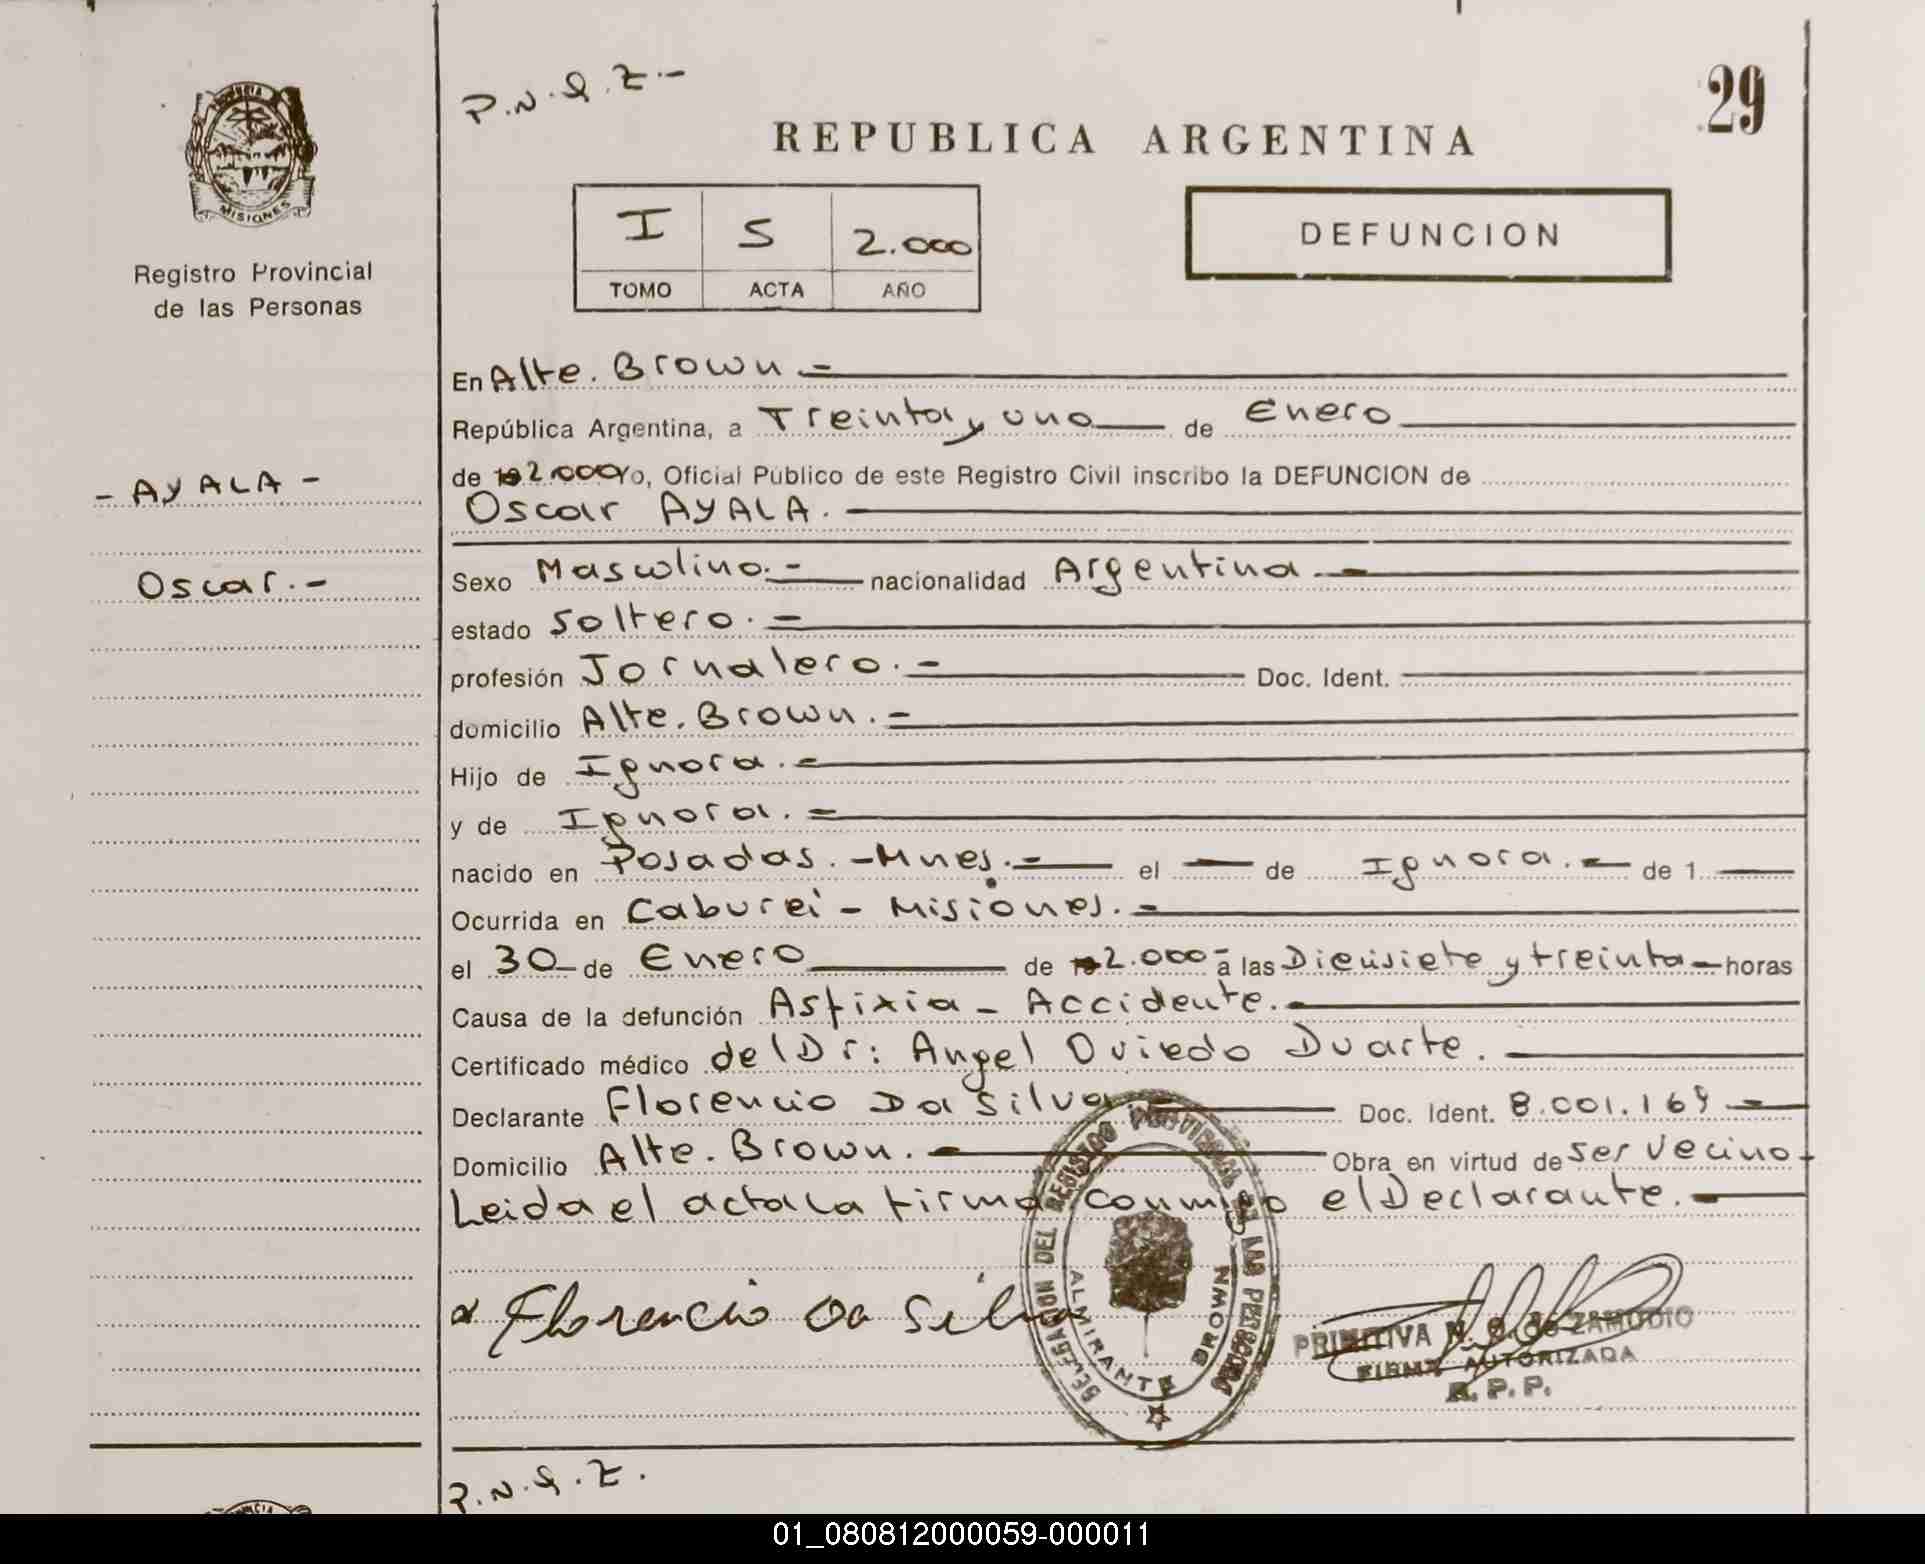 P.N.Q.Z.-
29
REPUBLICA ARGENTINA
PROVINCIA
MISIONES
Registro Provincial
de las Personas
I S 2.000
TOMO ACTA AÑO
DEFUNCION
- AYALA -
Oscar.-
En Alte. Brown -
República Argentina, a Treinta y uno de Enero
de 2.000 Yo, Oficial Público de este Registro Civil inscribo la DEFUNCION de
Oscar AYALA.
Sexo Masculino.- nacionalidad Argentina.-
estado Soltero.-
profesión Jornalero.- Doc. Ident.
domicilio Alte. Brown.-
Hijo de Ignora.-
y de Ignora.-
nacido en Posadas.-Mnes.- el — de Ignora.- de 1
Ocurrida en Caburei - Misiones.-
el 30 de Enero de 2.000- a las Diecisiete y treinta - horas
Causa de la defunción Asfixia - Accidente.-
Certificado médico del Dr: Angel Oviedo Duarte.
Declarante Florencio Da Silva Doc. Ident. 8.001.169 -
Domicilio Alte. Brown.- Obra en virtud de ser vecino-
Leida el acta la firma conmigo el Declarante.-
Florencio Da Silva
DELEGACION DEL REGISTRO PROVINCIAL DE LAS PERSONAS
ALMIRANTE BROWN
PRIMITIVA N. de ZAMUDIO
FIRMA AUTORIZADA
R. P. P.
P.N.Q.Z.
01_080812000059-000011